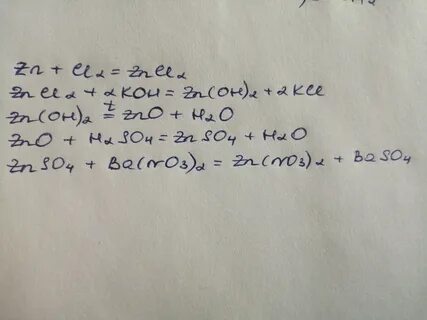 Zn + Cl2 = ZnCl2
ZnCl2 + 2KOH = Zn(OH)2 + 2KCl
Zn(OH)2 t= ZnO + H2O
ZnO + H2SO4 = ZnSO4 + H2O
ZnSO4 + Ba(NO3)2 = Zn(NO3)2 + BaSO4